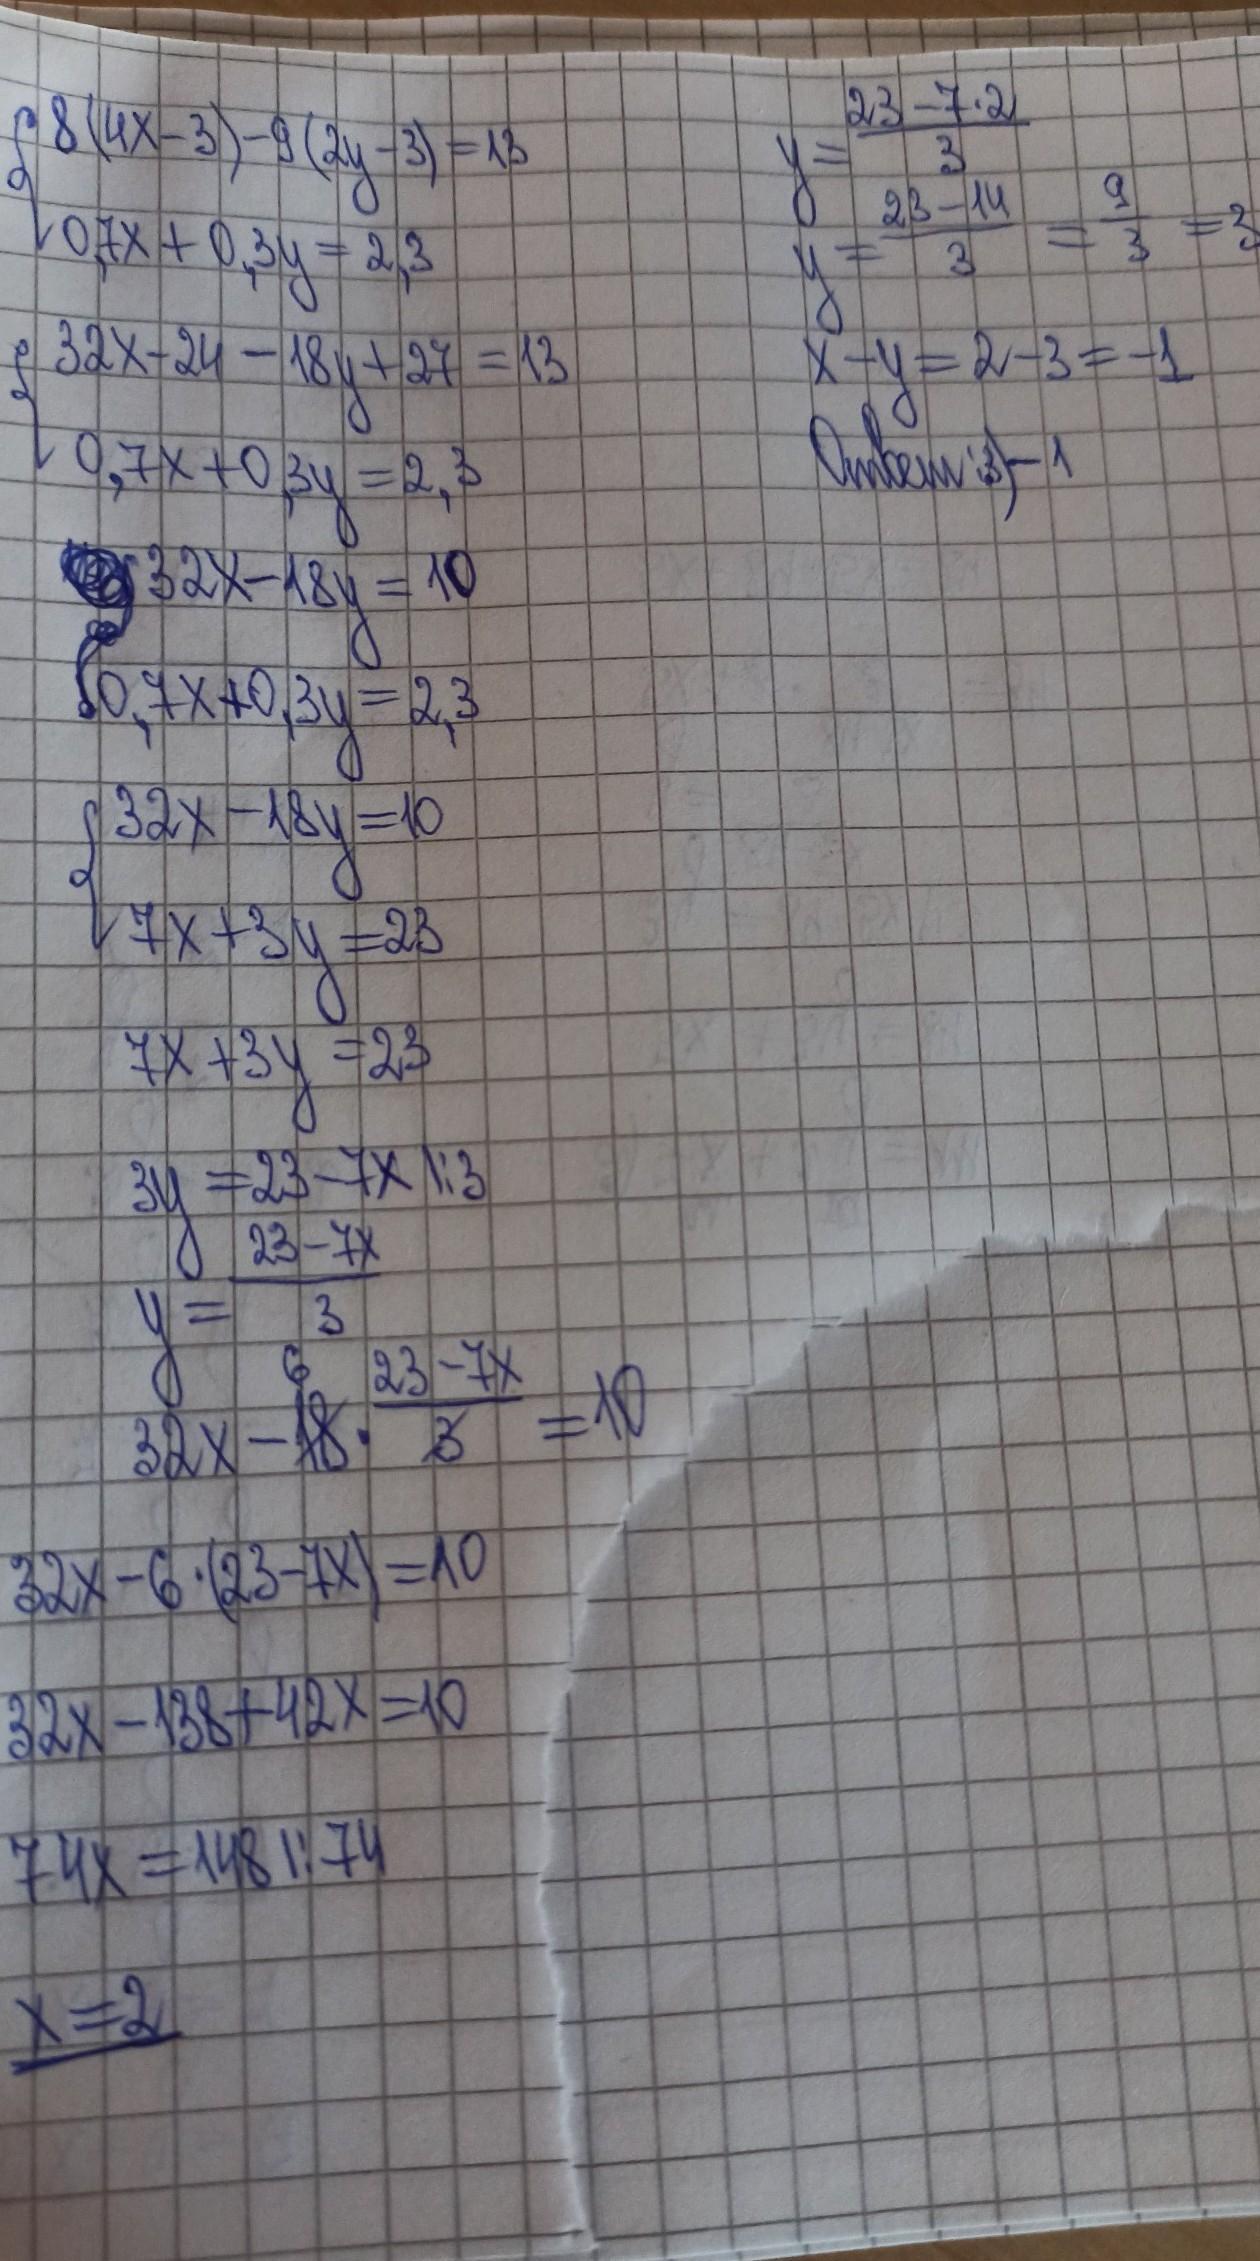 8(4x-3)-9(2y-3)=13
0,7x+0,3y=2,3
32x-24-18y+27=13
0,7x+0,3y=2,3
32x-18y=10
0,7x+0,3y=2,3
32x-18y=10
7x+3y=23
7x+3y=23
3y=23-7x |:3
y=\frac{23-7x}{3}
32x-18·\frac{23-7x}{3}=10
6
32x-6·(23-7x)=10
32x-138+42x=10
74x=148 |:74
x=2
y=\frac{23-7·2}{3}
y=\frac{23-14}{3}=\frac{9}{3}=3
x-y=2-3=-1
Ответ: 3)-1